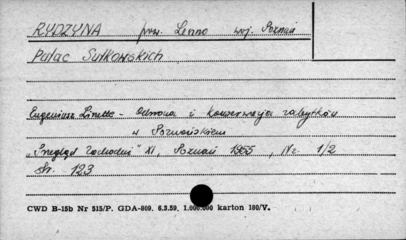 RYDZYNA pow. Leszno woj. Poznań
Pałac Sułkowskich
Eugeniusz Linette - Odnowa i konserwacja zabytków
w Poznańskiem
"Przegląd Zachodni" XI, Poznań 1955, Nr. 1/2
str. 123
CWD B-15b Nr 515/P. GDA-909. 6.3.59. 1.000.000 karton 180/V.